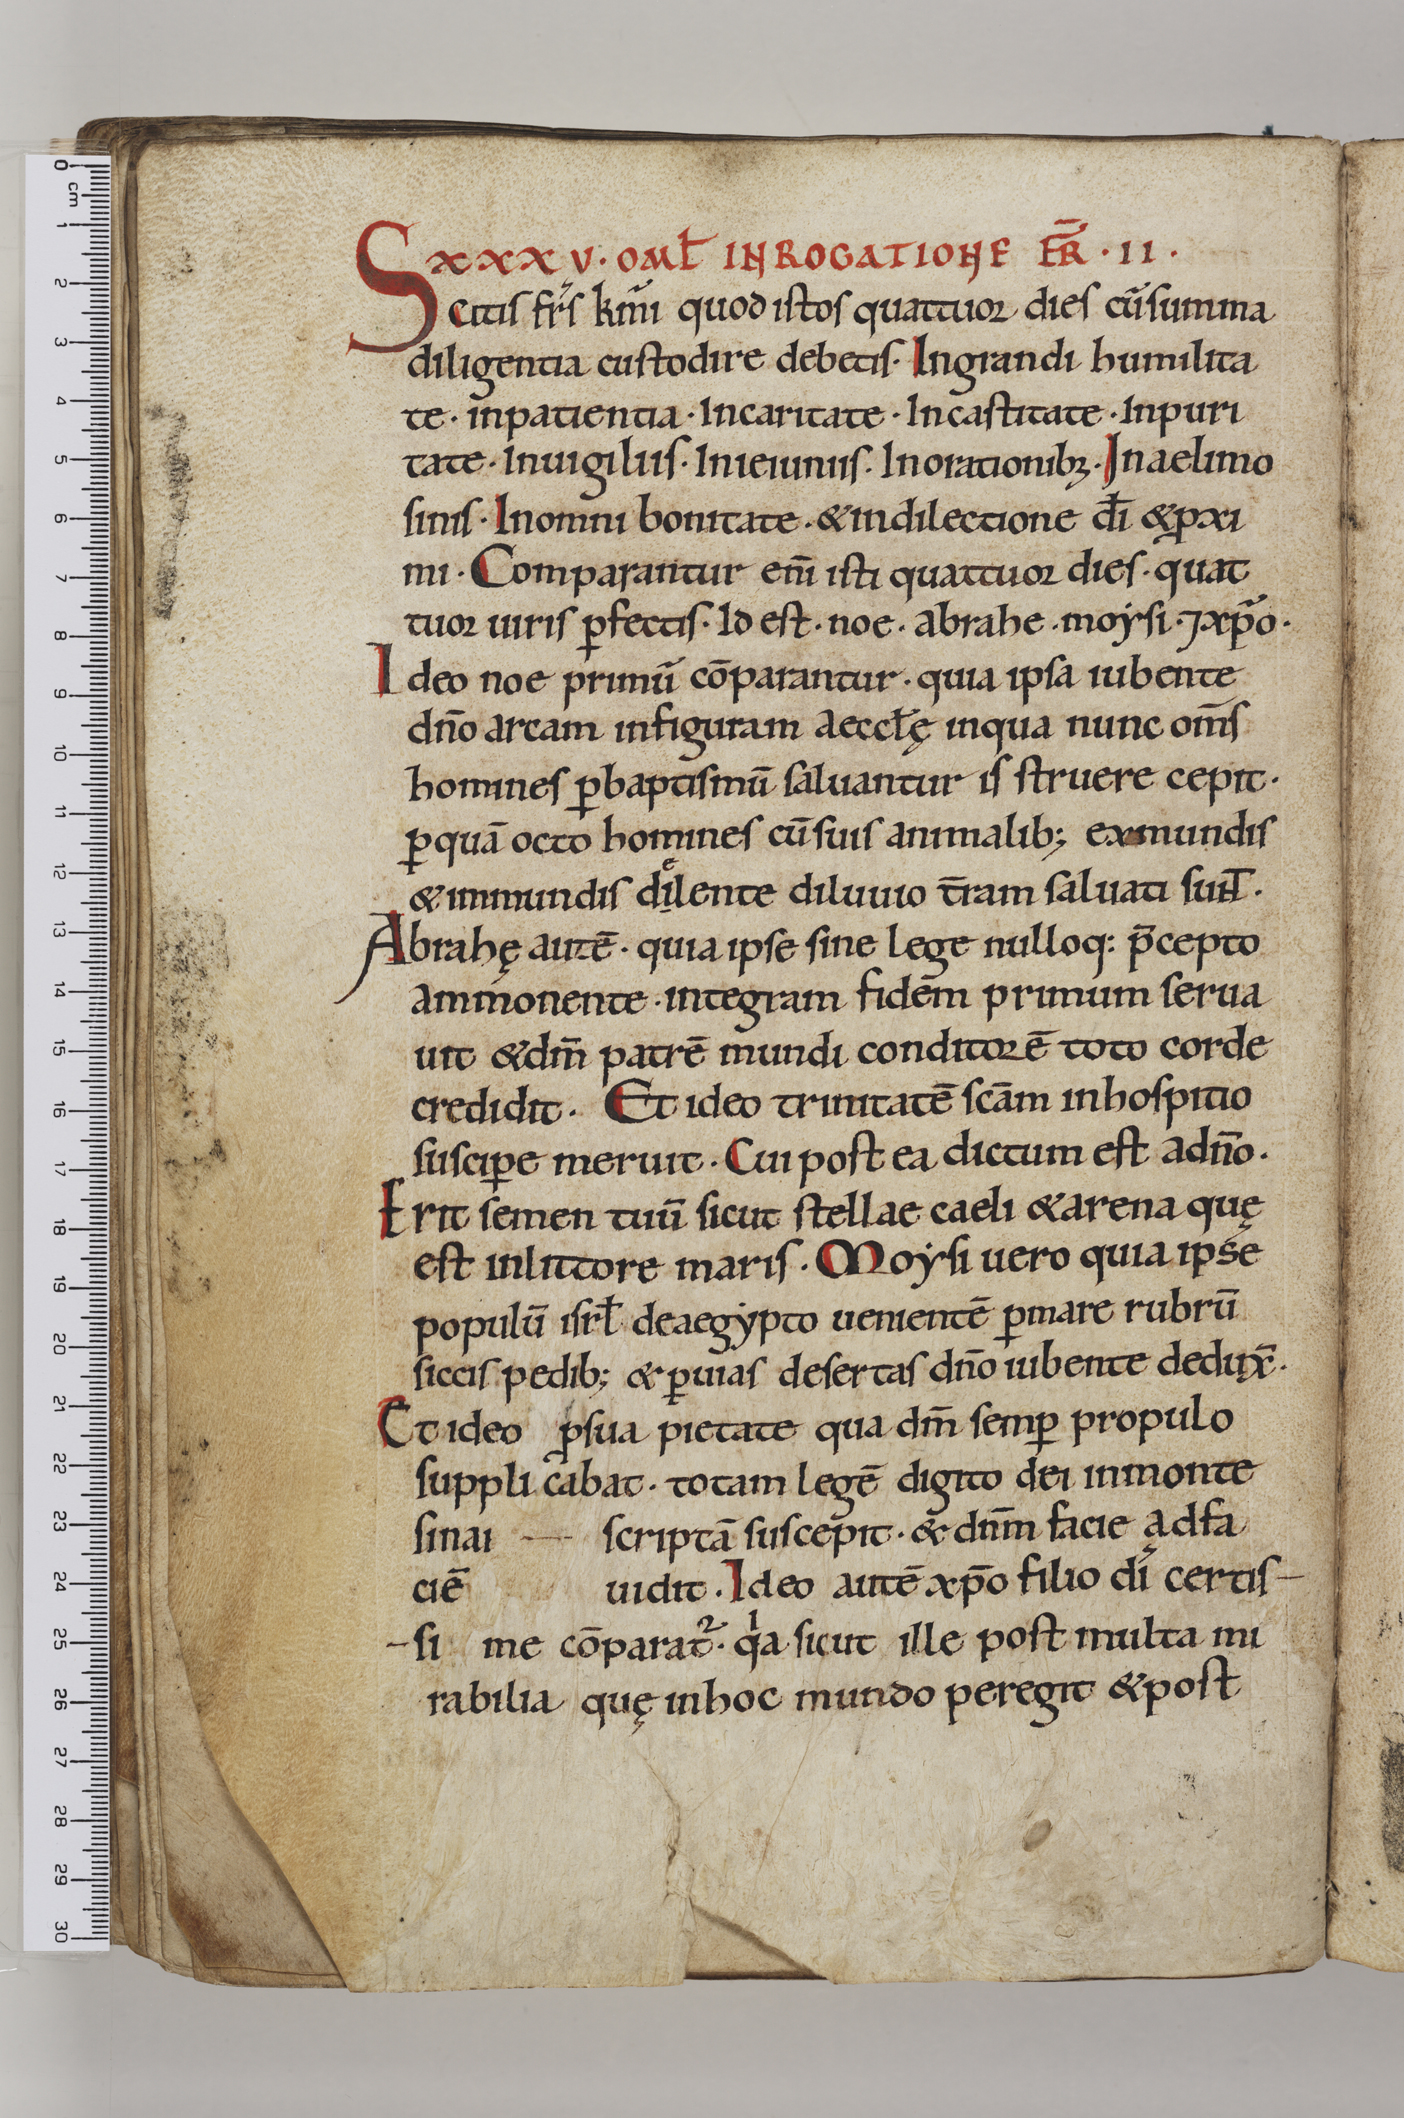 XXXV. OML̄ IN ROGATIONE FR̄. II.
Scitis frs̄ km̄i quod istos quattuor dies cū summa
diligentia custodire debetis. In grandi humilita
te. in patientia. In caritate. In castitate. In puri
tate. In uigiliis. In ieiuniis. In orationibꝫ. In aelimo
sinis. In omni bonitate. & in dilectione dī & ꝓxi
mi. Comparantur enī isti quattuor dies. quat
tuor uiris ꝑfectis. Id est. noe. abrahe. moysi. ⁊ xp̄o.
Ideo noe primū cōparantur. quia ipsa iubente
dn̄o arcam in figuram aeccłę in qua nunc om̄s
homines ꝑ baptismū saluantur is struere cepit.
ꝑ quā octo homines cū suis animalib; ex mundis
& immundis dilente diluuio t̄ram saluati sunt.
Abrahę autē. quia ipse sine lege nulloq: p̄cepto
ammonente. integram fidem primum serua
uit & dm̄ patrē mundi conditorē toto corde
credidit. Et ideo trinitatē scām in hospitio
susciꝑe meruit. Cui post ea dictum est a dn̄o.
Erit semen tuū sicut stellae caeli & arena quę
est in littore maris. Moysi uero quia ipse
populū isrł de aegypto uenientē ꝑ mare rubrū
siccis pedib; & ꝑ uias desertas dn̄o iubente dedux̄.
Et ideo ꝑ sua pietate qua dm̄ semꝑ pro populo
suppli cabat. totam legē digito dei in monte
sinai — scriptā suscepit. & dn̄m facie ad fa
ciē uidit. Ideo autē xp̄o filio dī certis-
-si me cōparat᷑. qa sicut ille post multa mi
rabilia quę in hoc mundo peregit & post